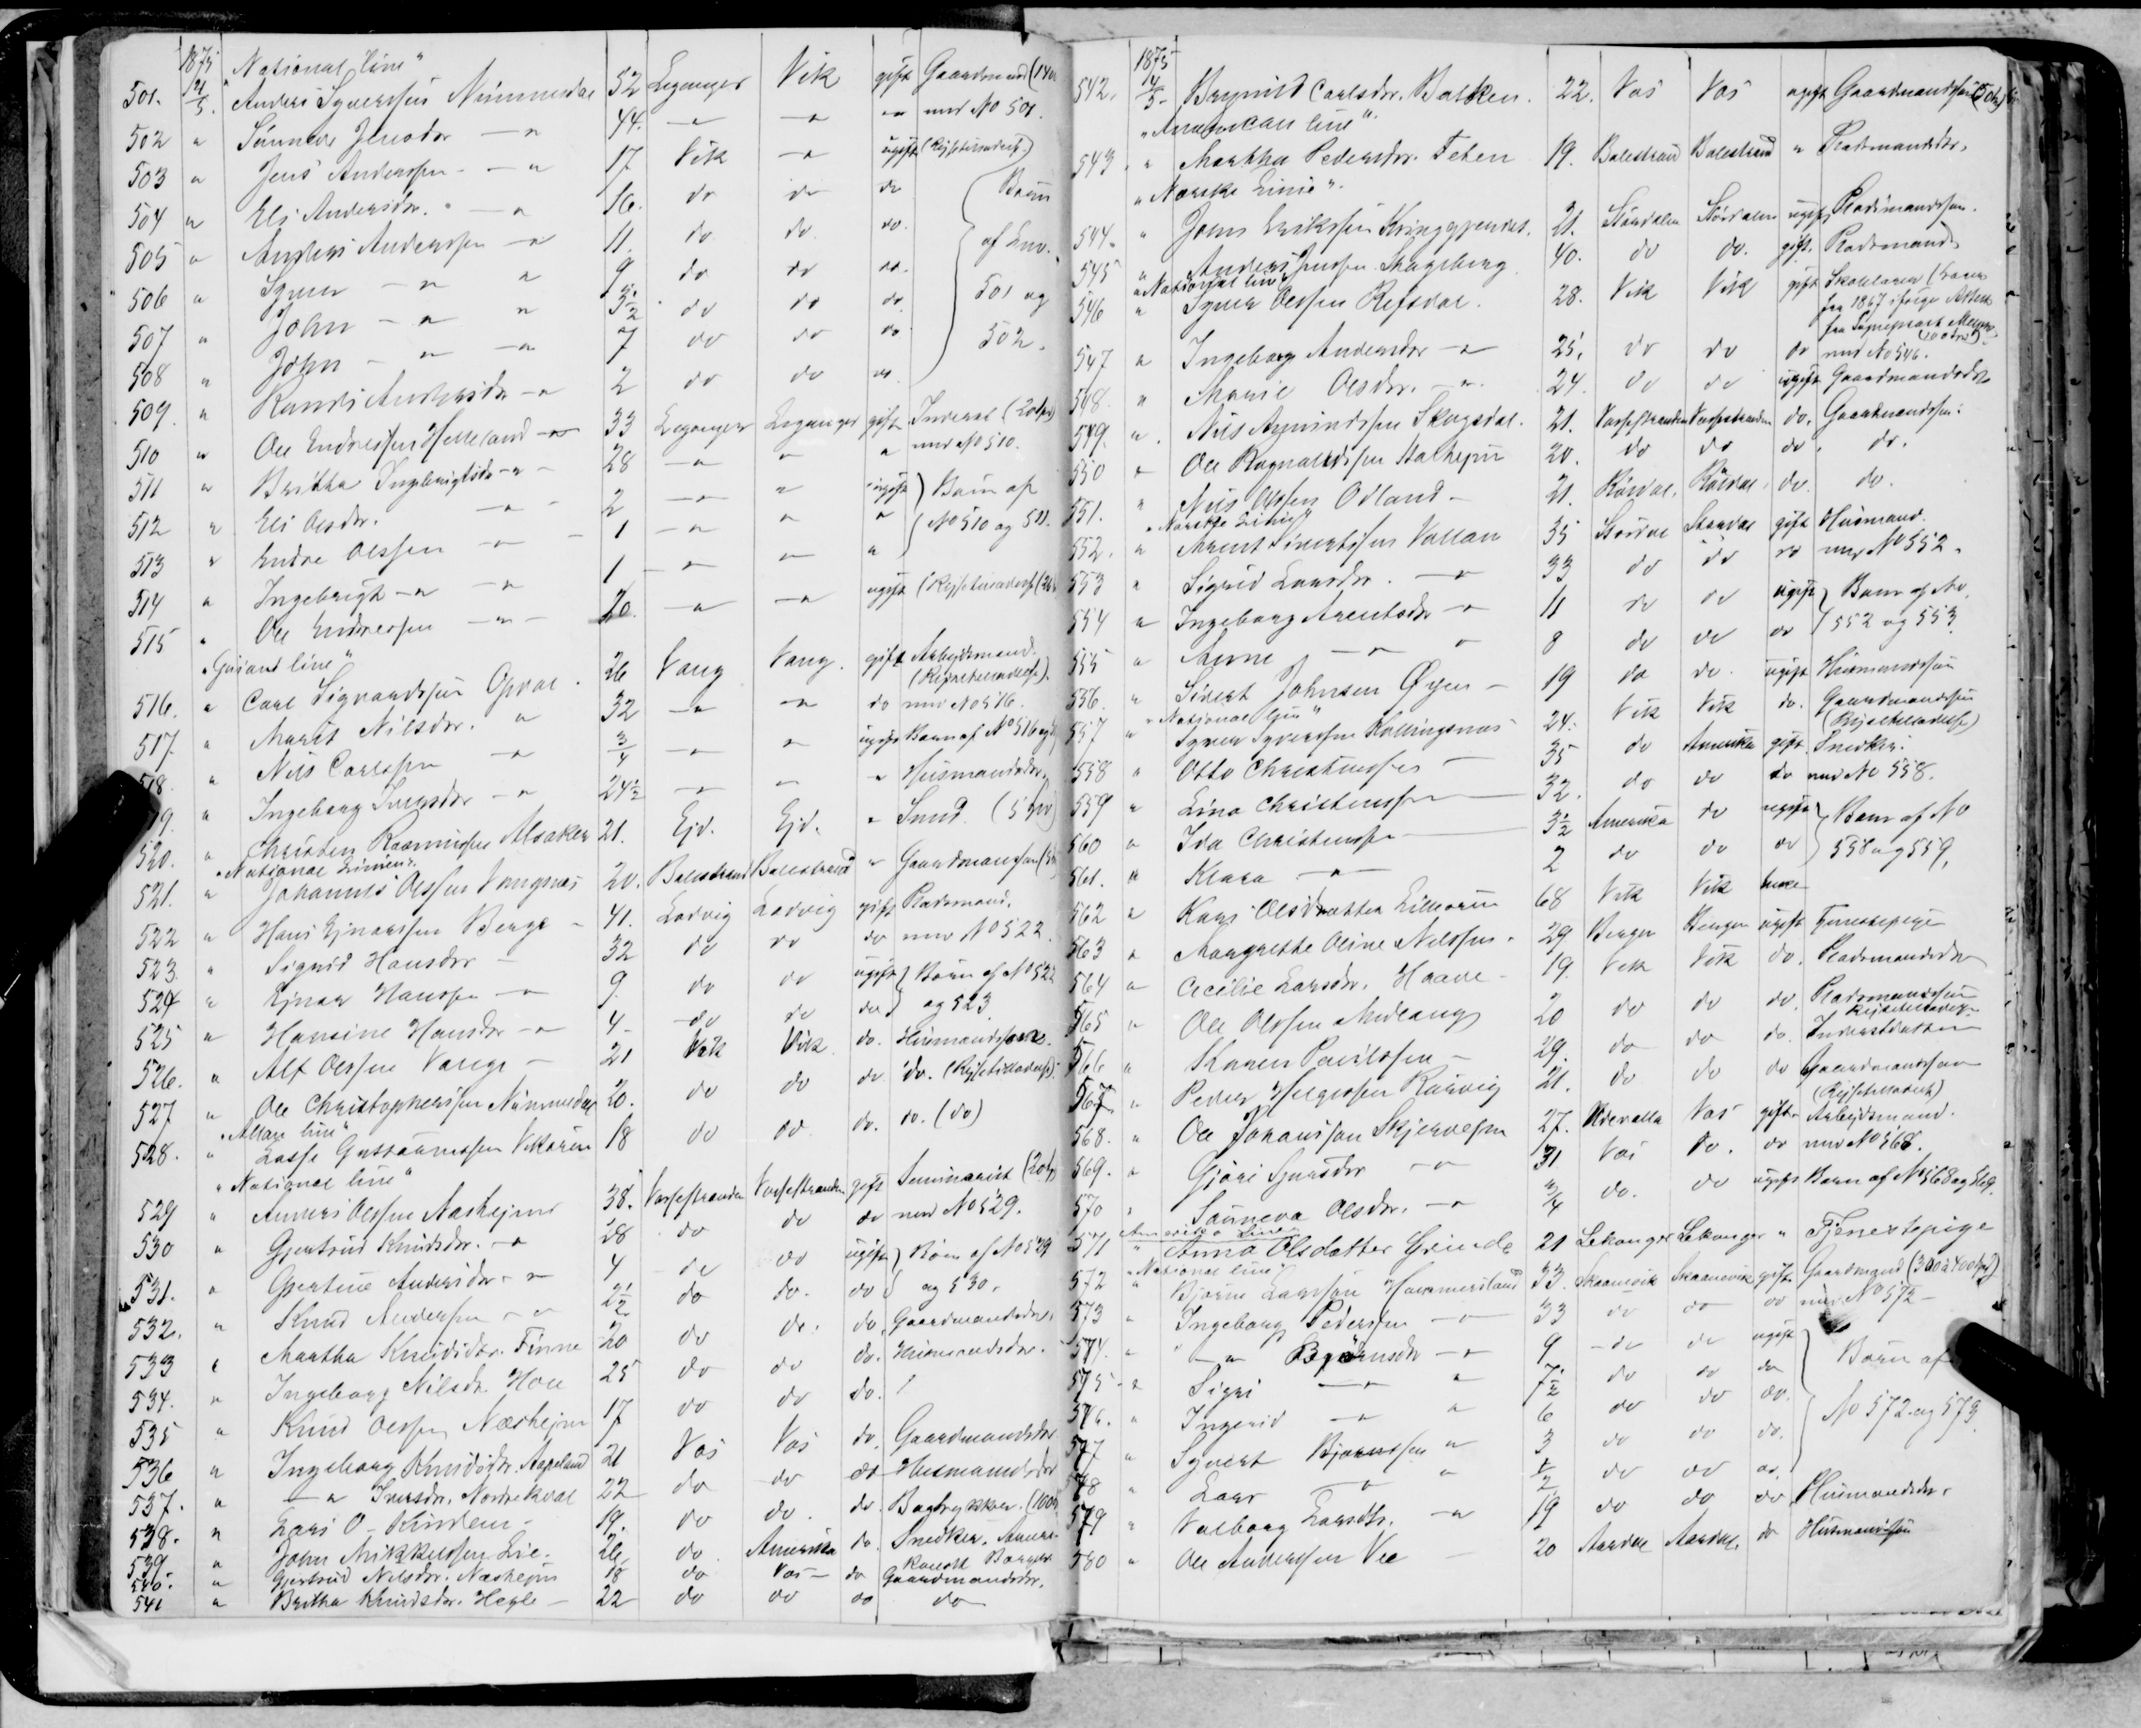 1875 "National line"
501. 4/5. Anders Syversen Nummedal 52 Leganger Vik gift Gaardmand
502 " Sünneve Jensdr — " 44. — " — " — " med No 501.
503 " Jens Andersen — " 17 Vik — " ugift
504 " Eli Andersdr. — " 16. do do do Børn
505 " Anders Andersen — " 11. do do do. af Em.
506 " Syver — " " 9 do do do. 501 og
507 " John — " " 3½ do do do 502.
508 " John — " — " 7 do do do
509. " Randi Andersdr — " 2 do do do
510 " Ole Endresen Helleland — " 33 Leganger Leganger gift Inderst (20 Spd)
511 " Britha Ingebrigtsdr — " 28 — " " " med No 510.
512 " Eli Olsdr. — " 2 — " " ugift Børn af
513 " Endre Olsen — " 1 — " " " No 510 og 511.
514 " Ingebrigt — " — " 1 — " — "
515 " Ole Endresen — " 20. — " — " ugift
line"
516. " Carl Sigvardsen Opdal. 26 Vang Vang. gift Arbeidsmand.
517. " Marit Nilsdr. " 32 — " — " do med No 516.
518. " Nils Carlsen — " 3/4 — " " ugift Barn af No 516 og
519. " Ingeborg Iversdr — " 24½ — " — " " Husmandsdr.
520. " Christen Rasmusen Alsaker 21. Ejd. Ejd. " Smed. (5 Spd)
"National Linien".
521. " Johannes Olsen Vangsnes 20. Balestrand Balestrand " Gaardmandsøn
522 " Hans Ejnarsen Berge — 41. Ladvig Ladvig gift Pladsmand.
523. " Sigrid Hansdr — 32 do do do med No 522.
524 " Ejnar Hansen — " 9. do do ugift Børn af No 522
525 " Hansine Hansdr — " 4 — do do do og 523.
526. " Alf Olsen Vange — 21 Vik Vik do. Husmandsøn.
527 " Ole Christophersen Nummedal 20. do do do do.
"Allan line"
528. " Lasse Gustavsen Vikøren 18 do do do. do. (do)
"National line"
529 " Anders Olsen Næshejm 38. Vossestranden Vossestranden gift Seminarist
530 " Gjertrud Knudsdr. — " 28 do do do med No 529.
531. " Gjertine Andersdr. — " 4 do do ugift Børn af No 529
532. " Knud Andersen — " 2½ do do. do og 530.
533 " Martha Knudsdr. Finne 20 do do. do. Gaardmandsdr.
534. " Ingeborg Nilsdr. Hole 25 do do do. Husmandsdr.
535 " Knud Olsen Næshejm 17 do do do.
536 " Ingeborg Knudsdr. Aspeland 21 Vos Vos do. Gaardmandsdr
537. " — " Iversdr. Nordre Kvale 22 do do do Husmandsdr
538. " Lars O. Kindem — 19. do do. do. Bogtrykker.
539. " John Mikkelsen Lie. 26. do Amerika do. Snedker.
540. " Gjertrud Nilsdr. Næshejm 18 do Vos — do Gaardmandsdr.
541 " Britha Knudsdr. Hegle — 22 do do do do
1875
542. 4/5. Brynild Carlsdr. Balken. 22. Vos Vos ugift Gaardmandsøn
"American line".
543. " Martha Pedersdr. Feten 19. Balestrand Balestrand " Pladsmandsdr.
"Norske Linie".
544. " Jonas Eriksen Kringgjerdet. 21. Størdalen Størdalen ugift Pladsmandsøn.
545 " Anders Jensen Skageberg 40. do do. gift. Pladsmand
"National line"
546 " Syver Olsen Refsdal. 28. Vik Vik gift Skolelærer
547 " Ingeborg Andersdr — " 25. do do do med No 546.
548. " Marie Olsdr. — " 24. do do ugift Gaardmandsdr
549. " Nils Aamundsen Skogsdal. 21. Vossestranden Vossestranden do. Gaardmandsøn.
550 " Ole Ragnaldsen Stalhejm 20. do do do do.
551. " Nils Olsen Odland — 21. Røldal. Røldal. do. do.
"Norske Linie"
552. " Arent Sivertsen Vollan 35 Størdal Størdal gift Husmand.
553 " Sigrid Larsdr. — " 33 do do do med No 552.
554 " Ingeborg Arentsdr — " 11 do do ugift Børn af No.
555 " Anne — " " 8 do do do 552 og 553.
556. " Sivert Johnsen Øyen — 19 do do. ugift Husmandsøn
"National line"
557 " Syver Syversen Hallingsnæs 24. Vik Vik do. Gaardmandsøn
558 " Otto Christensen — 35 do Amerika gift Snedker.
559 " Lina Christensen — 32. do do do med No 558.
560 " Ida Christensen — 3½ Amerika do ugift Børn af No
561. " Klara — " 2 do do do 558 og 559.
562 " Kari Olsdatter 68 Vik Vik Enke
563 " Margrethe Oline Nilsen. 29 Bergen Bergen ugift Tjenestepige
564 " Cecilie Larsdr. Haave — 19. Vik Vik do. Pladsmandsdr
565 " Ole Olsen Midlang 20 do do do. Pladsmandsøn
566 " Karen Poulsen — 29. do do do. Inderstdatter
567 " Peder Helgesen Rusvig 21. do do do Gaardmandsøn
568. " Ole Johansen Skjervheim 27. Udevalla Vos gift. Arbeidsmand.
569. " Gjøri Sjursdr — " 31 Vos do. do med No 568.
570 " Sønneva Olsdr. — " 3/4 do. do ugift Barn af No 568 og 569.
Amerika Linie
571 " Anna Olsdatter Grinde 21 Lekanger Lekanger " Tjenestepige
"National line"
572 " Bjørne Larsen Hammersland 33. Skaanevik Skaanevik gift Gaardmand (300 a 400 Spd)
573 " Ingeborg Pedersen — " 33 do do do med No 572 —
574. " — " Bjørnsdr — " 9 do do ugift Børn af
575 — " Sigri — " " 7½ do do do
576. " Ingerid — " " 6 do do do. No 572 og 573.
577 " Syvert Bjørnsen " 3 do do do.
578 " Lars — " " ½ do do do.
579 " Valborg Larsdtr. — " 19 do do do Husmandsdr.
580 " Ole Andersen Vee — 20 Aardal Aardal. do Husmandsøn